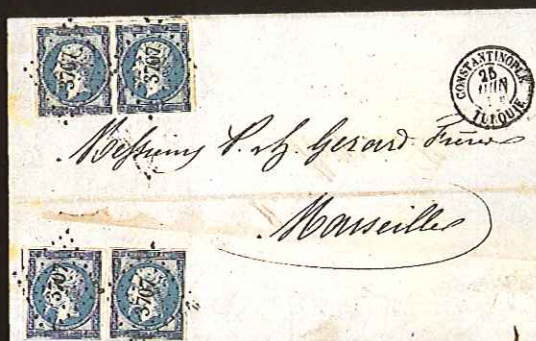 3707 3707
CONSTANTINOPLE
25
JUIN
TURQUIE
Messieurs P. & H. Gerard Frères
Marseille
3707 3707